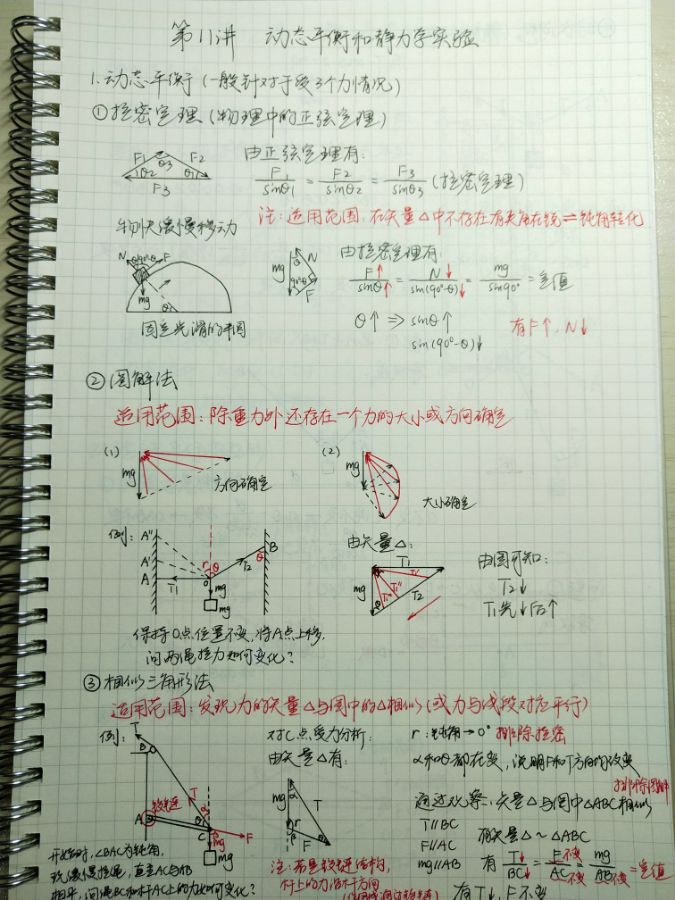 第11讲 动态平衡和静力学实验
1.动态平衡(一般针对于受3个力情况)
①拉密定理(物理中的正弦定理)
由正弦定理有:
F1 F2 F3 θ1 θ2 θ3
F1/sinθ1 = F2/sinθ2 = F3/sinθ3 (拉密定理)
注:适用范围,在矢量△中不存在有夹角在锐⇌钝角转化
物块缓慢移动
N 90°-θ F mg θ
固定光滑的半圆
mg N 90°-θ F
由拉密定理有
F↑/sinθ↑ = N↓/sin(90°-θ)↓ = mg/sin90° = 定值
θ↑ ⇒ sinθ↑
sin(90°-θ)↓
有F↑,N↓
②图解法
适用范围:除重力外还存在一个力的大小或方向确定
(1) mg 方向确定
(2) mg 大小确定
例: A'' A' A T1 O θ T2 B θ mg mg
由矢量△:
mg T1 T1' T1'' T1''' T2 θ
由图可知:
T2↓
T1先↓后↑
保持O点位置不变,将A点上移,
问两绳拉力如何变化?
③相似三角形法
适用范围:发现力的矢量△与图中的△相似(或力与线段对应平行)
例: T B T A 铰链 C F mg mg
对C点受力分析:
由矢量△有:
mg T r F
r:钝角→0° 排除拉密
α和θ都在变,说明F和T方向均改变
通过观察,矢量△与图中△ABC相似
T∥BC
F∥AC
mg∥AB
有矢量△~△ABC
有 T↓/BC↓ = F不变/AC不变 = mg/AB不变 = 定值
有T↓,F不变
开始时,∠BAC为钝角,
现缓慢拉绳,直至AC与AB
相平,问绳BC和杆AC上的力如何变化?
注:若是铰链结构,
杆上的力沿杆方向